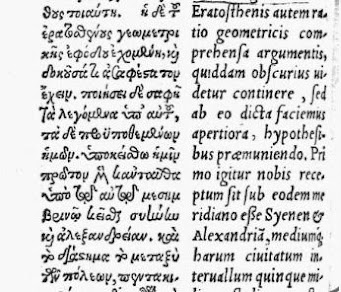 θους τοιαύτη. ἡ δὲ τοῦ
ἐρατοσθένους γεωμετρι
κῆς ἐφόδου ἐχομένη, κὴ
δοκοῦσά τι ἀσαφέστερον
ἔχειν. ποιήσει δὲ σαφῆ
τὰ λεγόμενα ὑπ᾽ αὐτοῦ,
τάδε προϋποθεμένων
ἡμῶν. ὑποκείσθω ἡμῖν
πρῶτον μὲν κἀνταῦθα
ὑπὸ τῷ αὐτῷ μεσημ
βρινῷ κεῖσθαι συήνην
κὴ ἀλεξανδρείαν. καὶ
τὸ διάστημα τὸ μεταξὺ
τῶν πόλεων, πεντακι
Eratosthenis autem ra
tio geometricis com
prehensa argumentis,
quiddam obscurius ui
detur continere, sed
ab eo dicta faciemus
apertiora, hypothesi
bus præmuniendo. Pri
mo igitur nobis rece
ptum sit sub eodem me
ridiano esse Syenen &
Alexandriã, mediumq;
harum ciuitatum in
teruallum quinque mi